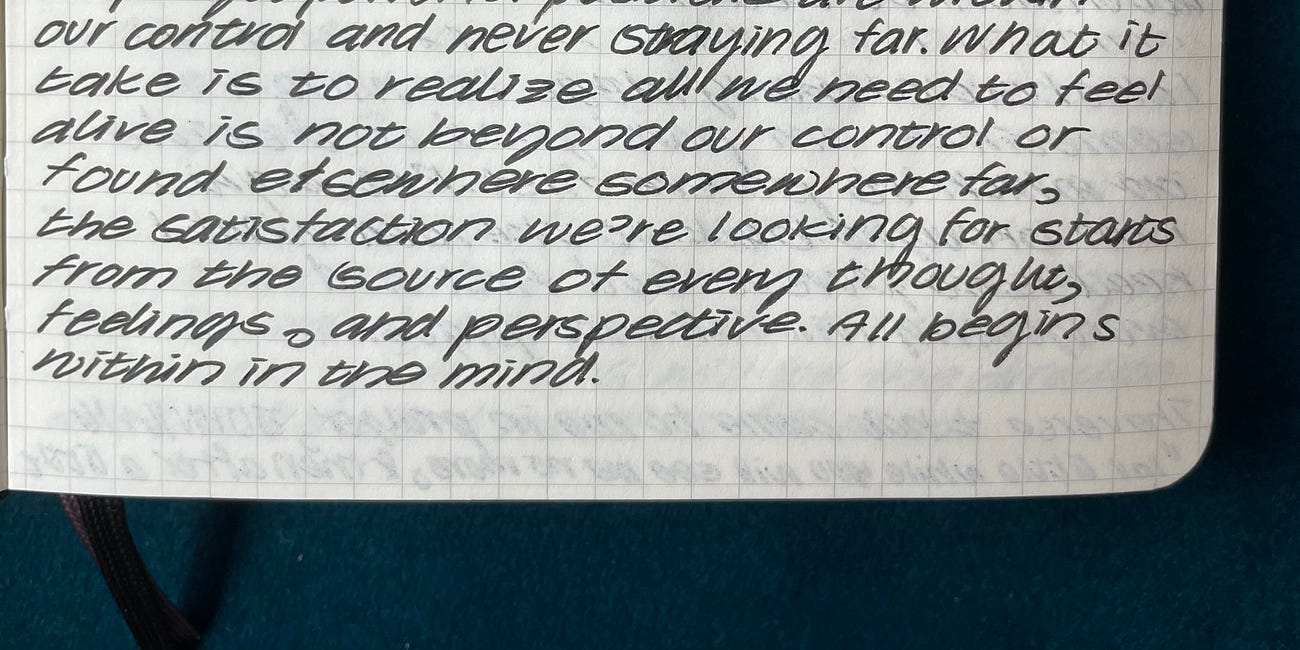 our control and never straying far. What it
take is to realize all we need to feel
alive is not beyond our control or
found elsewhere somewhere far,
the satisfaction we're looking for starts
from the source of every thought,
feelings, and perspective. All begins
within in the mind.